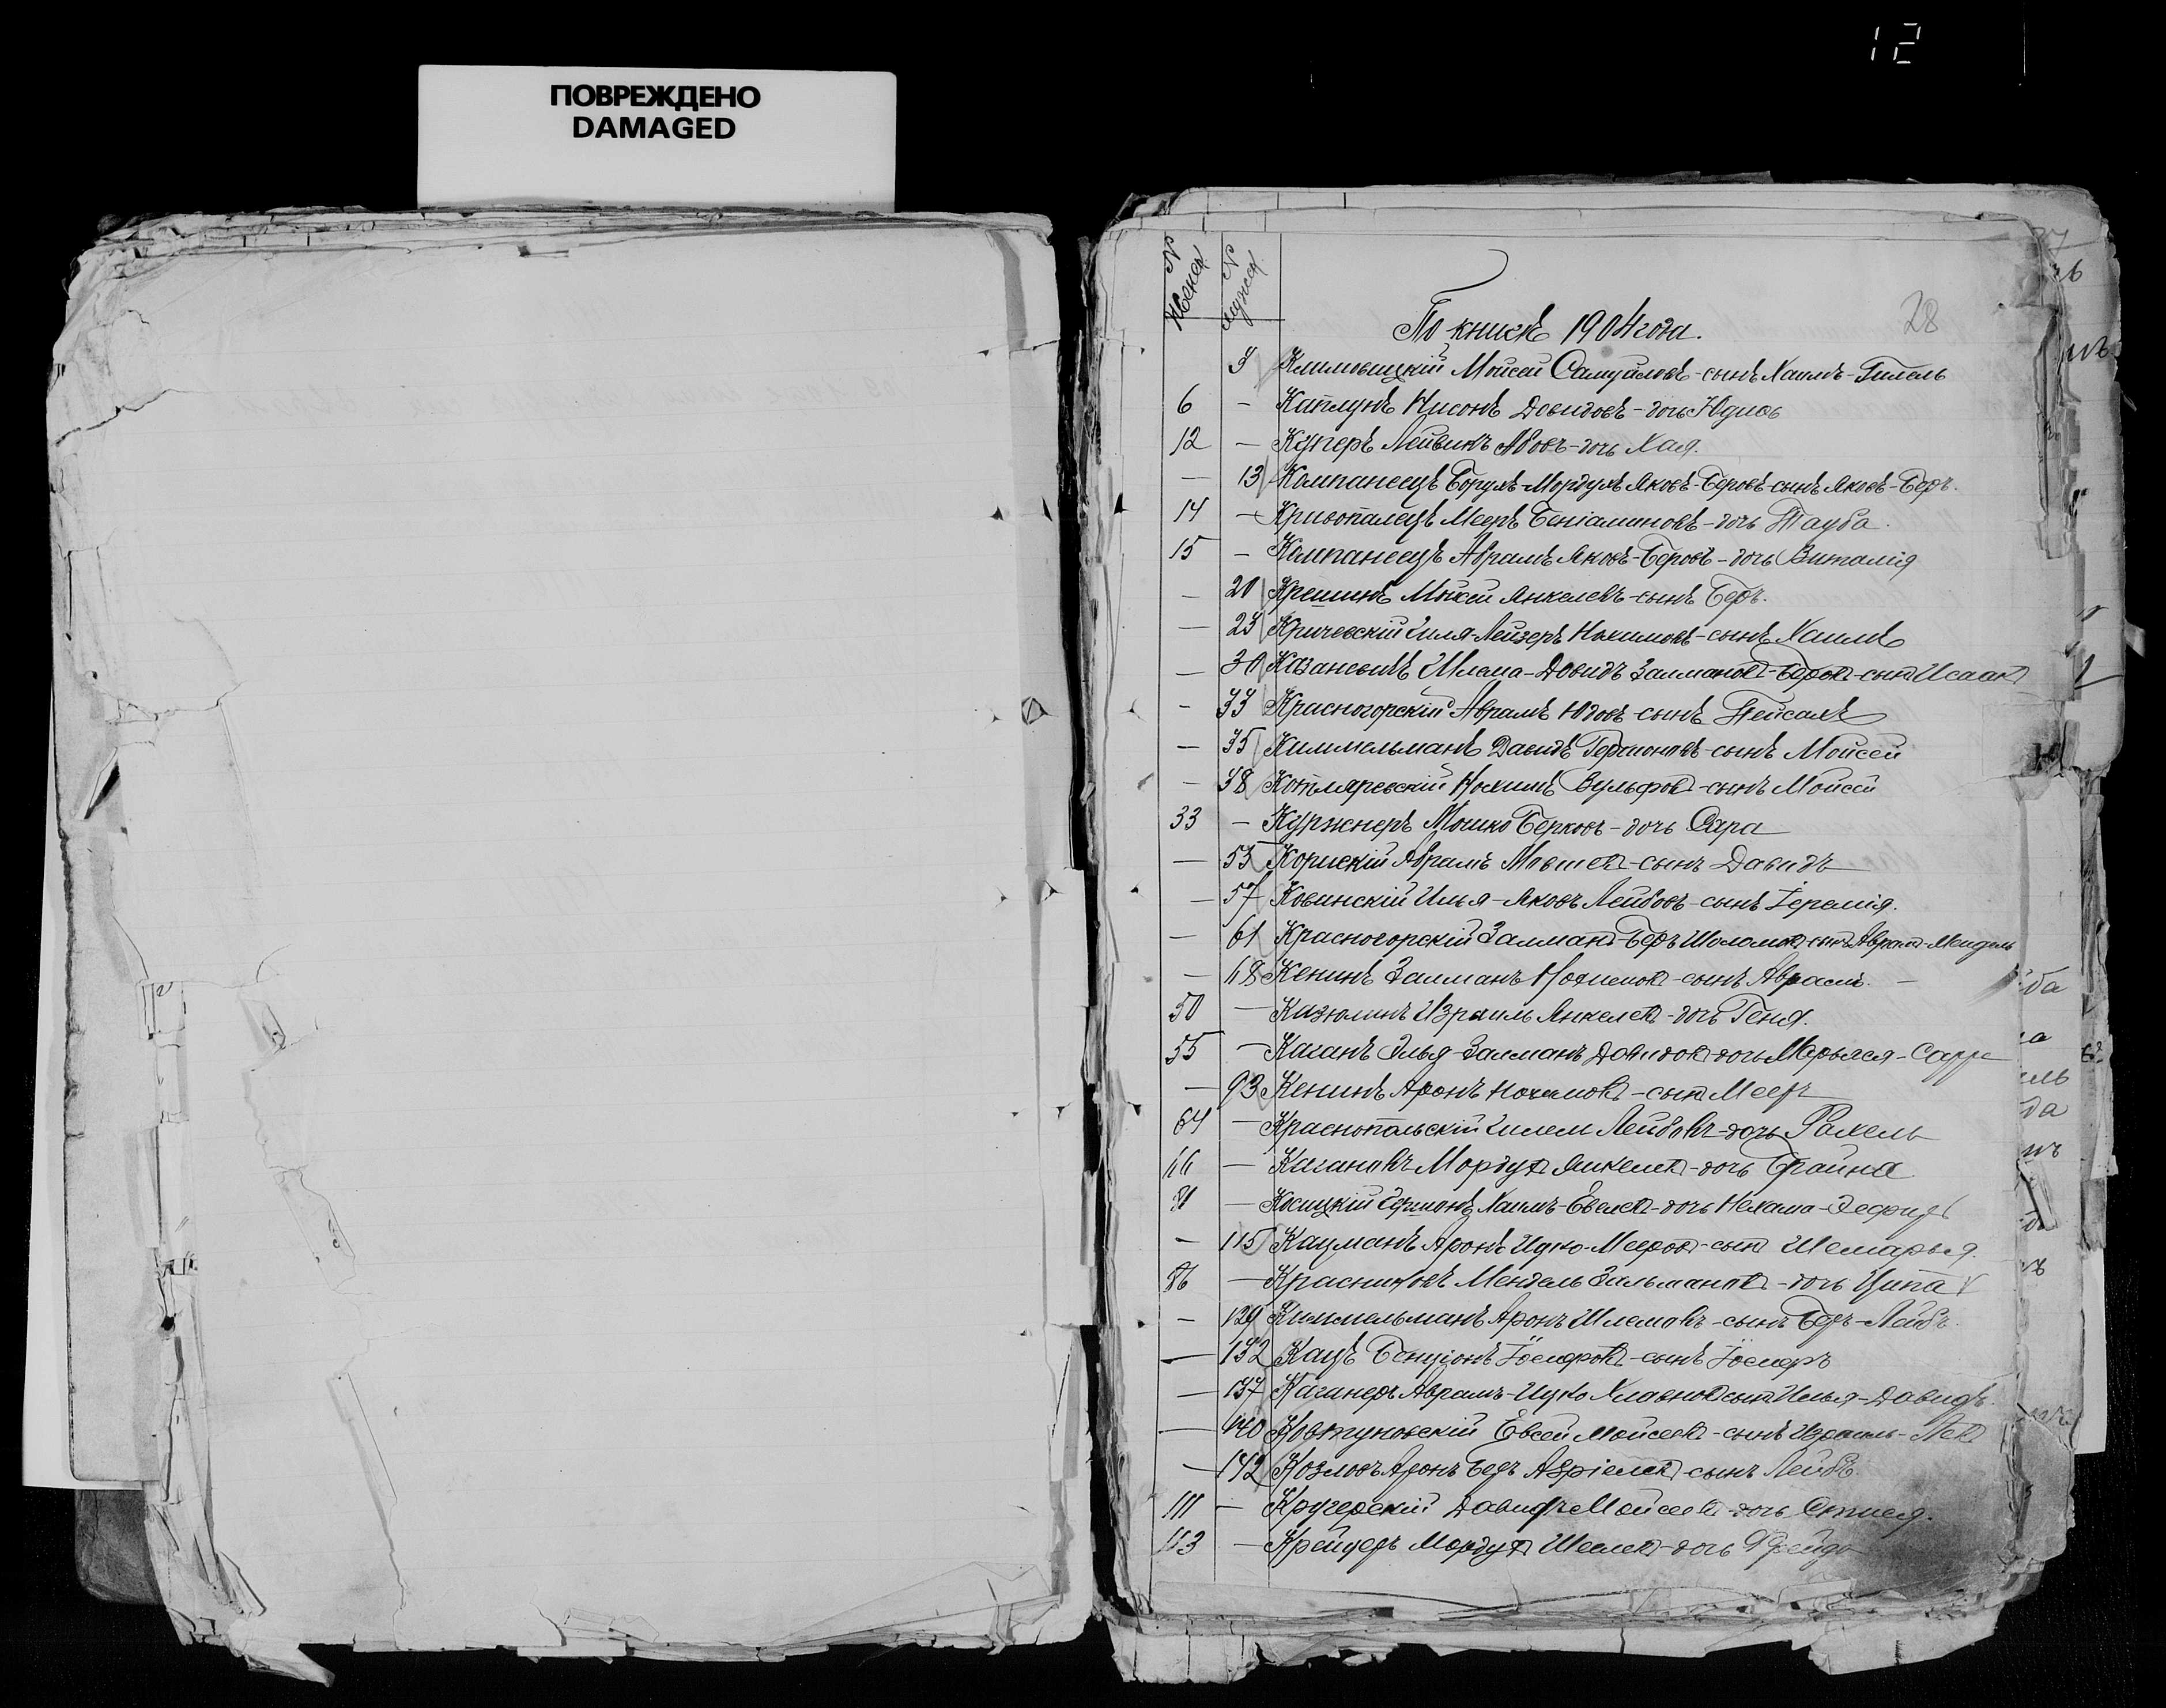 12
ПОВРЕЖДЕНО
DAMAGED
28
N женск. N мужск.
По книгѣ 1904 года.
3 Климовицкій Мойсей Самуиловъ - сынъ Хаимъ-Гилель
6 - Каплунъ Нисонъ Довидовъ - дочь Юдиѳь
12 - Куперъ Лейвикъ Абовъ - дочь Хая.
— 13 Компанеецъ Борухъ-Мордухъ Яковъ-Беровъ - сынъ Яковъ-Беръ.
14 — Кривопалецъ Мееръ Беніаминовъ - дочь Тауба.
15 - Компанеецъ Абрамъ Яковъ-Беровъ - дочь Виталія
- 20 Крешинъ Мойсей Янкелевъ - сынъ Беръ.
— 23 Кричевскій Гиля-Лейзеръ Нохимовъ - сынъ Хаимъ
— 30 Казаневичъ Шлема-Довидъ Залманов-Беров - сын Исаак
- 33 Красногорскій Абрамъ Юдовъ - сынъ Пейсахъ
— 35 Киммельманъ Давидъ Германовъ - сынъ Мойсей
- 38 Котляревскій Нохимъ Вульфов - сынъ Мойсей
33 — Куржнеръ Мошко Берковъ - дочь Сара
— 53 Абрамъ Мовшев - сынъ Давидъ
— 57 Ковинскій Илья-Яковъ Лейбовъ - сынъ Іеремія.
— 61 Красногорскій Залман-Беръ Шоломов - сын Абрам-Мендель
— 68 Кенинъ Залманъ Нохимов - сынъ Абрамъ. —
50 — Казюминъ Израиль Янкелев - дочь Геня.
55 — Каганъ Элья-Залманъ Довидов - дочь Мерьяся-Сарра
— 93 Кенинъ Аронъ Нохимов - сын Мееръ
64 — Краснопольскій Лейбовъ - дочь Рахель
66 — Кагановъ Мордух Янкелев - дочь Брайна
81 — Косицкій Хаимъ-Евелев - дочь Нехама-
— 115 Кацманъ Аронъ Ицко-Мееров - сын Шемарья.
86 — Красниковъ Мендель Зальманов - дочь Ципа
— 129 Киммельманъ Аронъ Шлемовъ - сынъ Беръ-Лейбъ.
— 132 Кацъ Бенціонъ Іосифов - сынъ Іосифъ
— 137 Каганеръ Абрамъ-Ицко Хлавнов сын Илья-Давидъ.
— 140 Ковтуновскій Евсей Мойсеев - сынъ Израиль-
— 142 Козловъ Аронъ Беръ Азріелев - сынъ Лейбъ.
111 — Давидъ Мойсеев - дочь
113 — Крейцеръ Мордух - дочь Фрейда